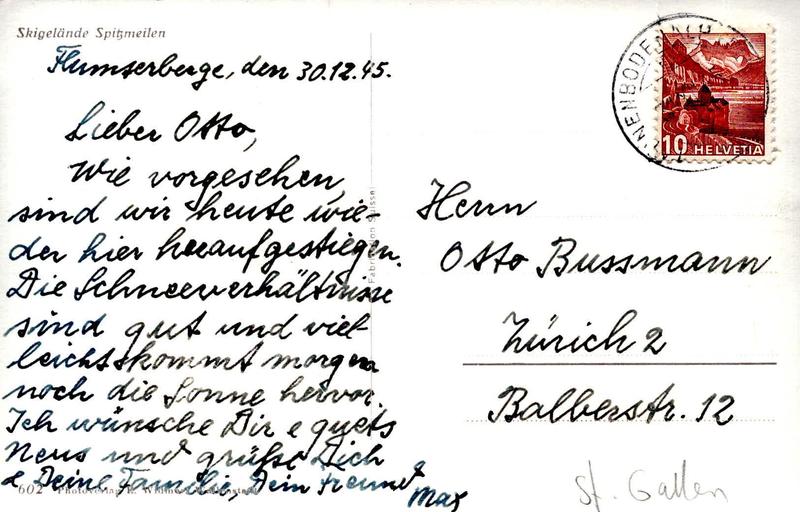 Skigelände Spitzmeilen
Flumserberge, den 30.12.45.
Lieber Otto,
Wie vorgesehen,
sind wir heute wie-
der hier heraufgestiegen.
Die Schneeverhältnisse
sind gut und viel
leicht skommt morgen
noch die Sonne hervor.
Ich wünsche Dir e guets
Neus und grüße Dich
& Deine Familie, Dein Freund
Max
602 Photoverlag
Fabrication Suisse
NENBODENALP
10 HELVETIA
Herrn
Otto Bussmann
Zürich 2
Balberstr. 12
St. Gallen